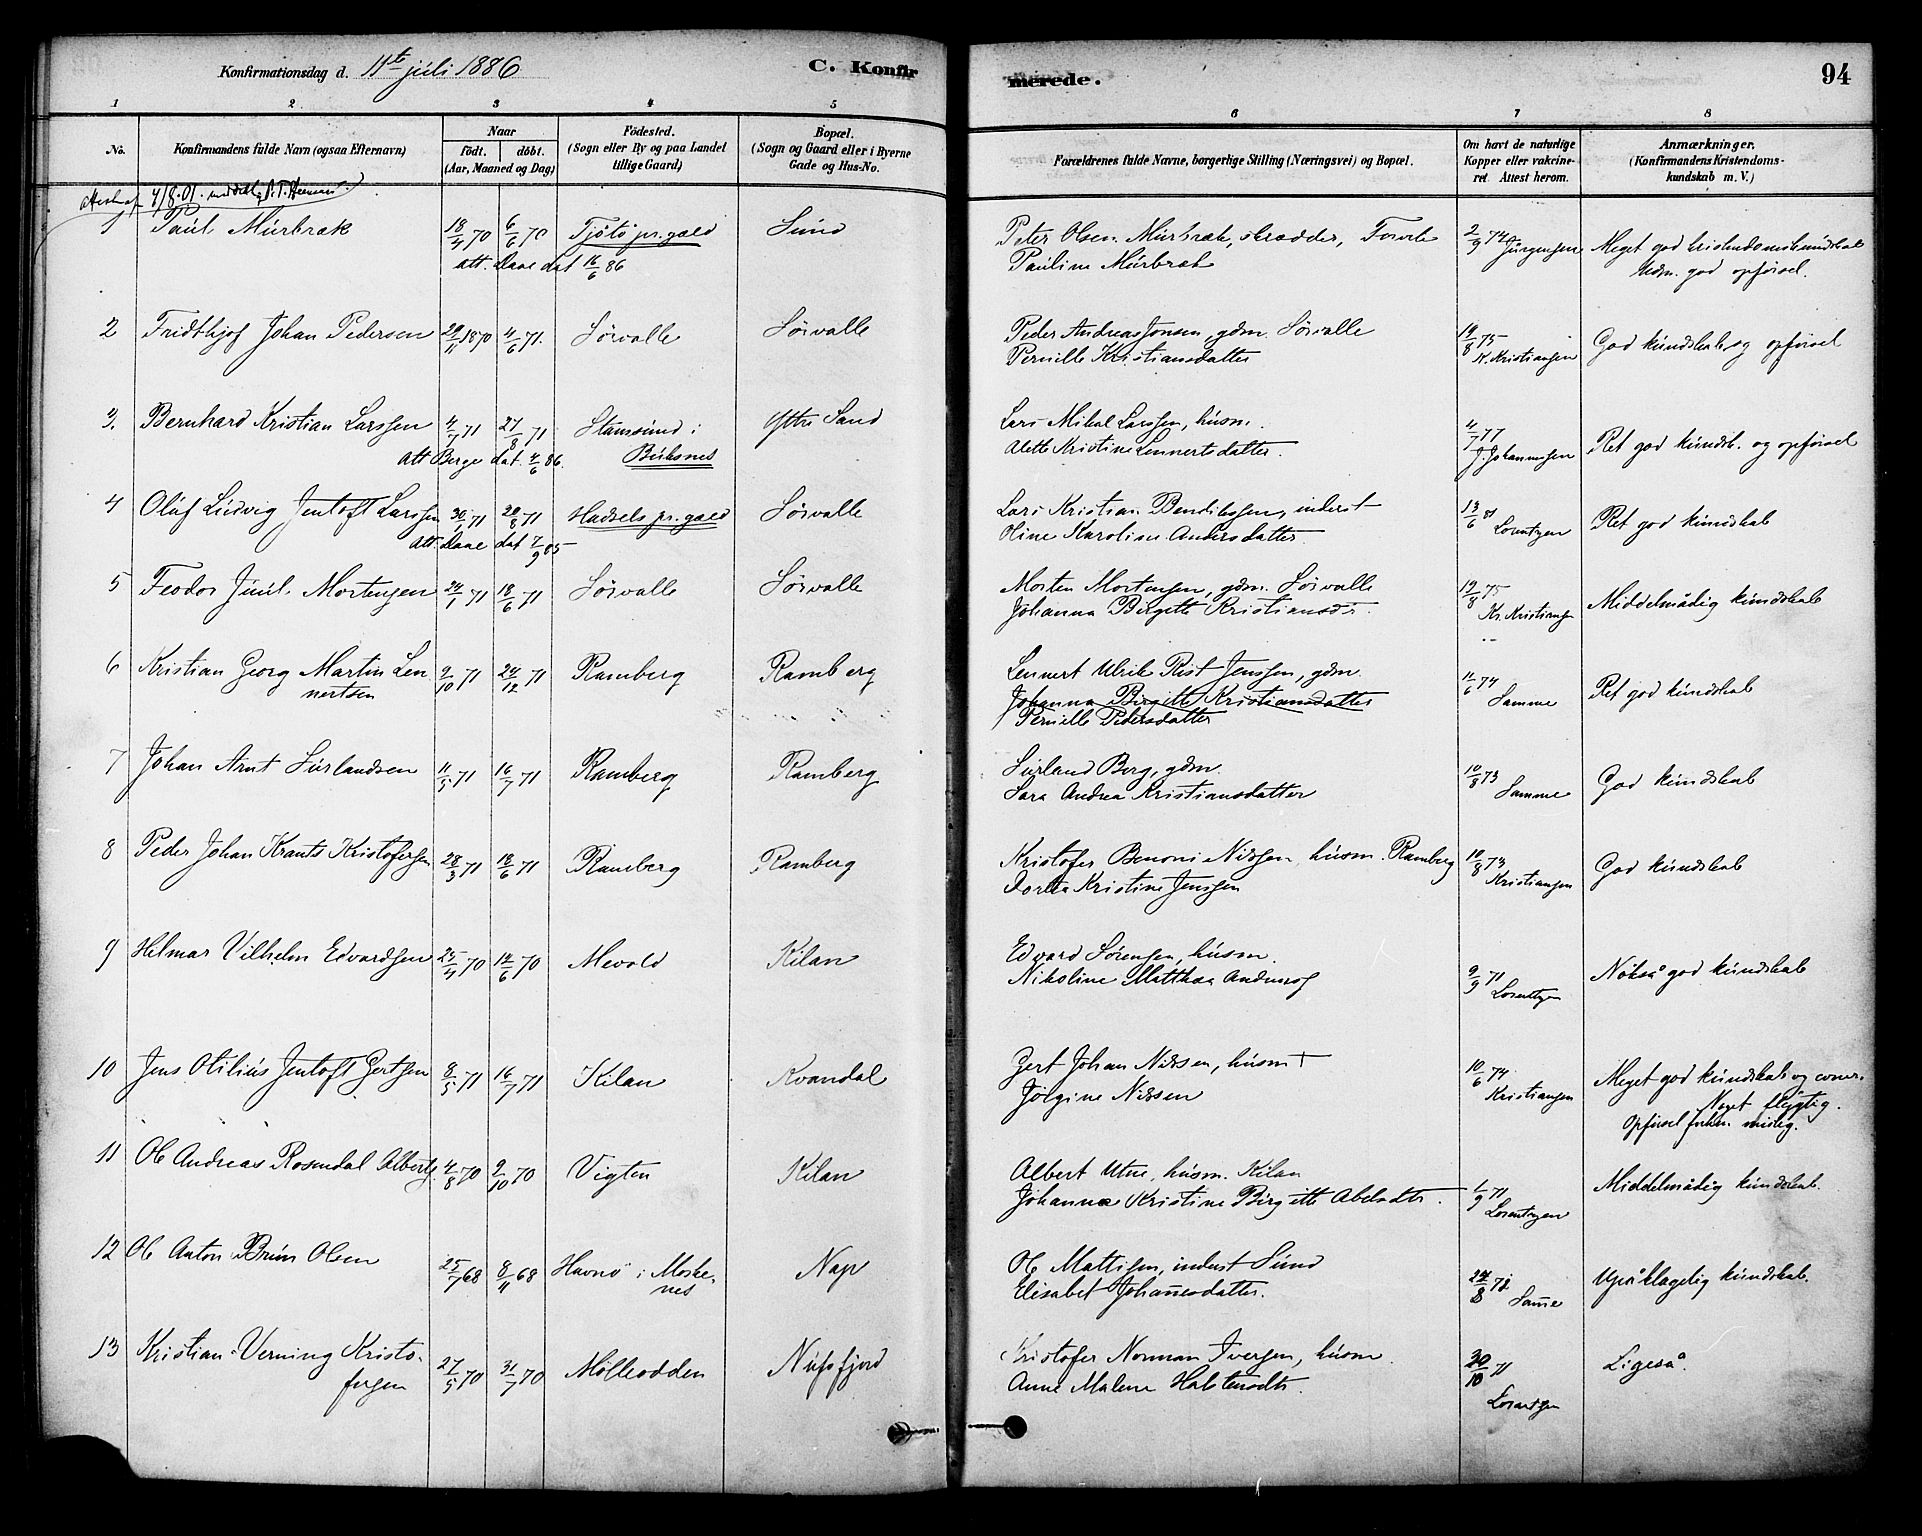 Konfirmationsdag d. 11te juli 1886
C. Konfir
merede.
94
1 2 3 4 5 6 7 8
No.
Konfirmandens fulde Navn (ogsaa Efternavn)
Naar
født. døbt.
(Aar, Maaned og Dag)
Fødested.
(Sogn eller By og paa Landet tillige Gaard)
Bopæl.
(Sogn og Gaard eller i Byerne Gade og Hus-No.
Forældrenes fulde Navne, borgerlige Stilling (Næringsvei) og Bopæl.
Om havt de naturlige Kopper eller vakcineret. Attest herom.
Anmærkninger.
(Konfirmandens Kristendomskundskab m. V.)
1 Paul Murbræk 18/4 70 6/6 70 Tjøtø pr.gæld Sund Peter Olsen Murbræk, skrædder, 2/9 74 Jürgensen Meget god kristendomskundskab
att. Daae dat 16/6 86 Pauline Murbræk Udm. god opførsel.
2 Fridthjof Johan Pedersen 29/11 1870 4/6 71. Sørvalle Sørvalle Peder Andreas Jonsen, gdm. Sørvalle 19/8 75 K. Kristiansen God kundskab og opførsel
Pernille Kristiansdatter
3. Bernhard Kristian Larssen 4/7 71 27/8 71 Stamsund i Yttre Sand Lars Mikal Larssen, husm. 4/7 77 J. Johannesen Ret god kundsk. og opførsel
att Berge dat. 4/6 86. Buksnes Alette Kristine Lennertsdatter.
4 Oluf Ludvig Jentoft Larssen 30/1 71 20/8 71 Hadsels pr.gæld Sørvalle Lars Kristian Bendikssen, inderst 13/6 81 Lorentzen Ret god kundskab
att. Daae dat 7/9 85 Oline Karoline Andersdatter
5 Feodor Juul Mortensen 24/1 71 18/6 71 Sørvalle Sørvalle Morten Mortensen, gdm. Sørvalle 19/8 75 Kr. Kristiansen Middelmådig kundskab
Johanna Birgitte Kristiansdr.
6 Kristian Georg Martin Len 9/10 71 24/12 71 Ramberg Ramberg Lennert Ulrik Rist Jenssen, gdm. 11/6 74 Samme Ret god kundskab
nertsen Johanna Birgitte Kristiansdatter
Pernille Pedersdatter
7 Johan Arnt Surlandsen 11/5 71 16/7 71 Ramberg Ramberg Surland Berg, gdm. 10/8 73 Samme God kundskab
Sara Andrea Kristiansdatter
8 Peder Johan Krants Kristofersen 28/3 71 18/6 71 Ramberg Ramberg Kristofer Benoni Nilssen, husm. Ramberg 10/8 73 Kristiansen God kundskab
Dortea Kristine Jenssen
9 Hilmar Vilhelm Edvardsen 25/4 70 12/6 70 Mevold Kilan Edvard Sørensen, husm. 9/9 71 Lorentzen Nokså god kundskab
Nikoline Matthea
10 Jens Otilius Jentoft Gertsen 8/5 71 16/7 71 Kilan Kvandal Gert Johan Nilssen, husm † 10/6 74 Kristiansen Meget god kundskab og
Jørgine Nilssen Noget flygtig.
Opførsel
11 Ole Andreas Rosendal Alberts. 4/8 70 2/10 70 Vigten Kilan Albert Utne, husm. Kilan 1/9 71 Lorentzen Middelmådig kundskab.
Johanna Kristine Birgitte Abelsdtr.
12 Ole Anton Bruun Olsen 25/7 68 8/11 68 Havnø i Moske- Nap Ole Mattisen, inderst Sund 24/8 72 Samme Upåklagelig kundskab.
nes Elisabet Johannesdatter.
13 Kristian Verning Kristo- 27/5 70 31/7 70 Mølleodden Nufsfjord Kristofer Norman Iversen, husm. 30/10 71 Lorentzen Ligeså.
fersen Anne Malene Halstensdtr.